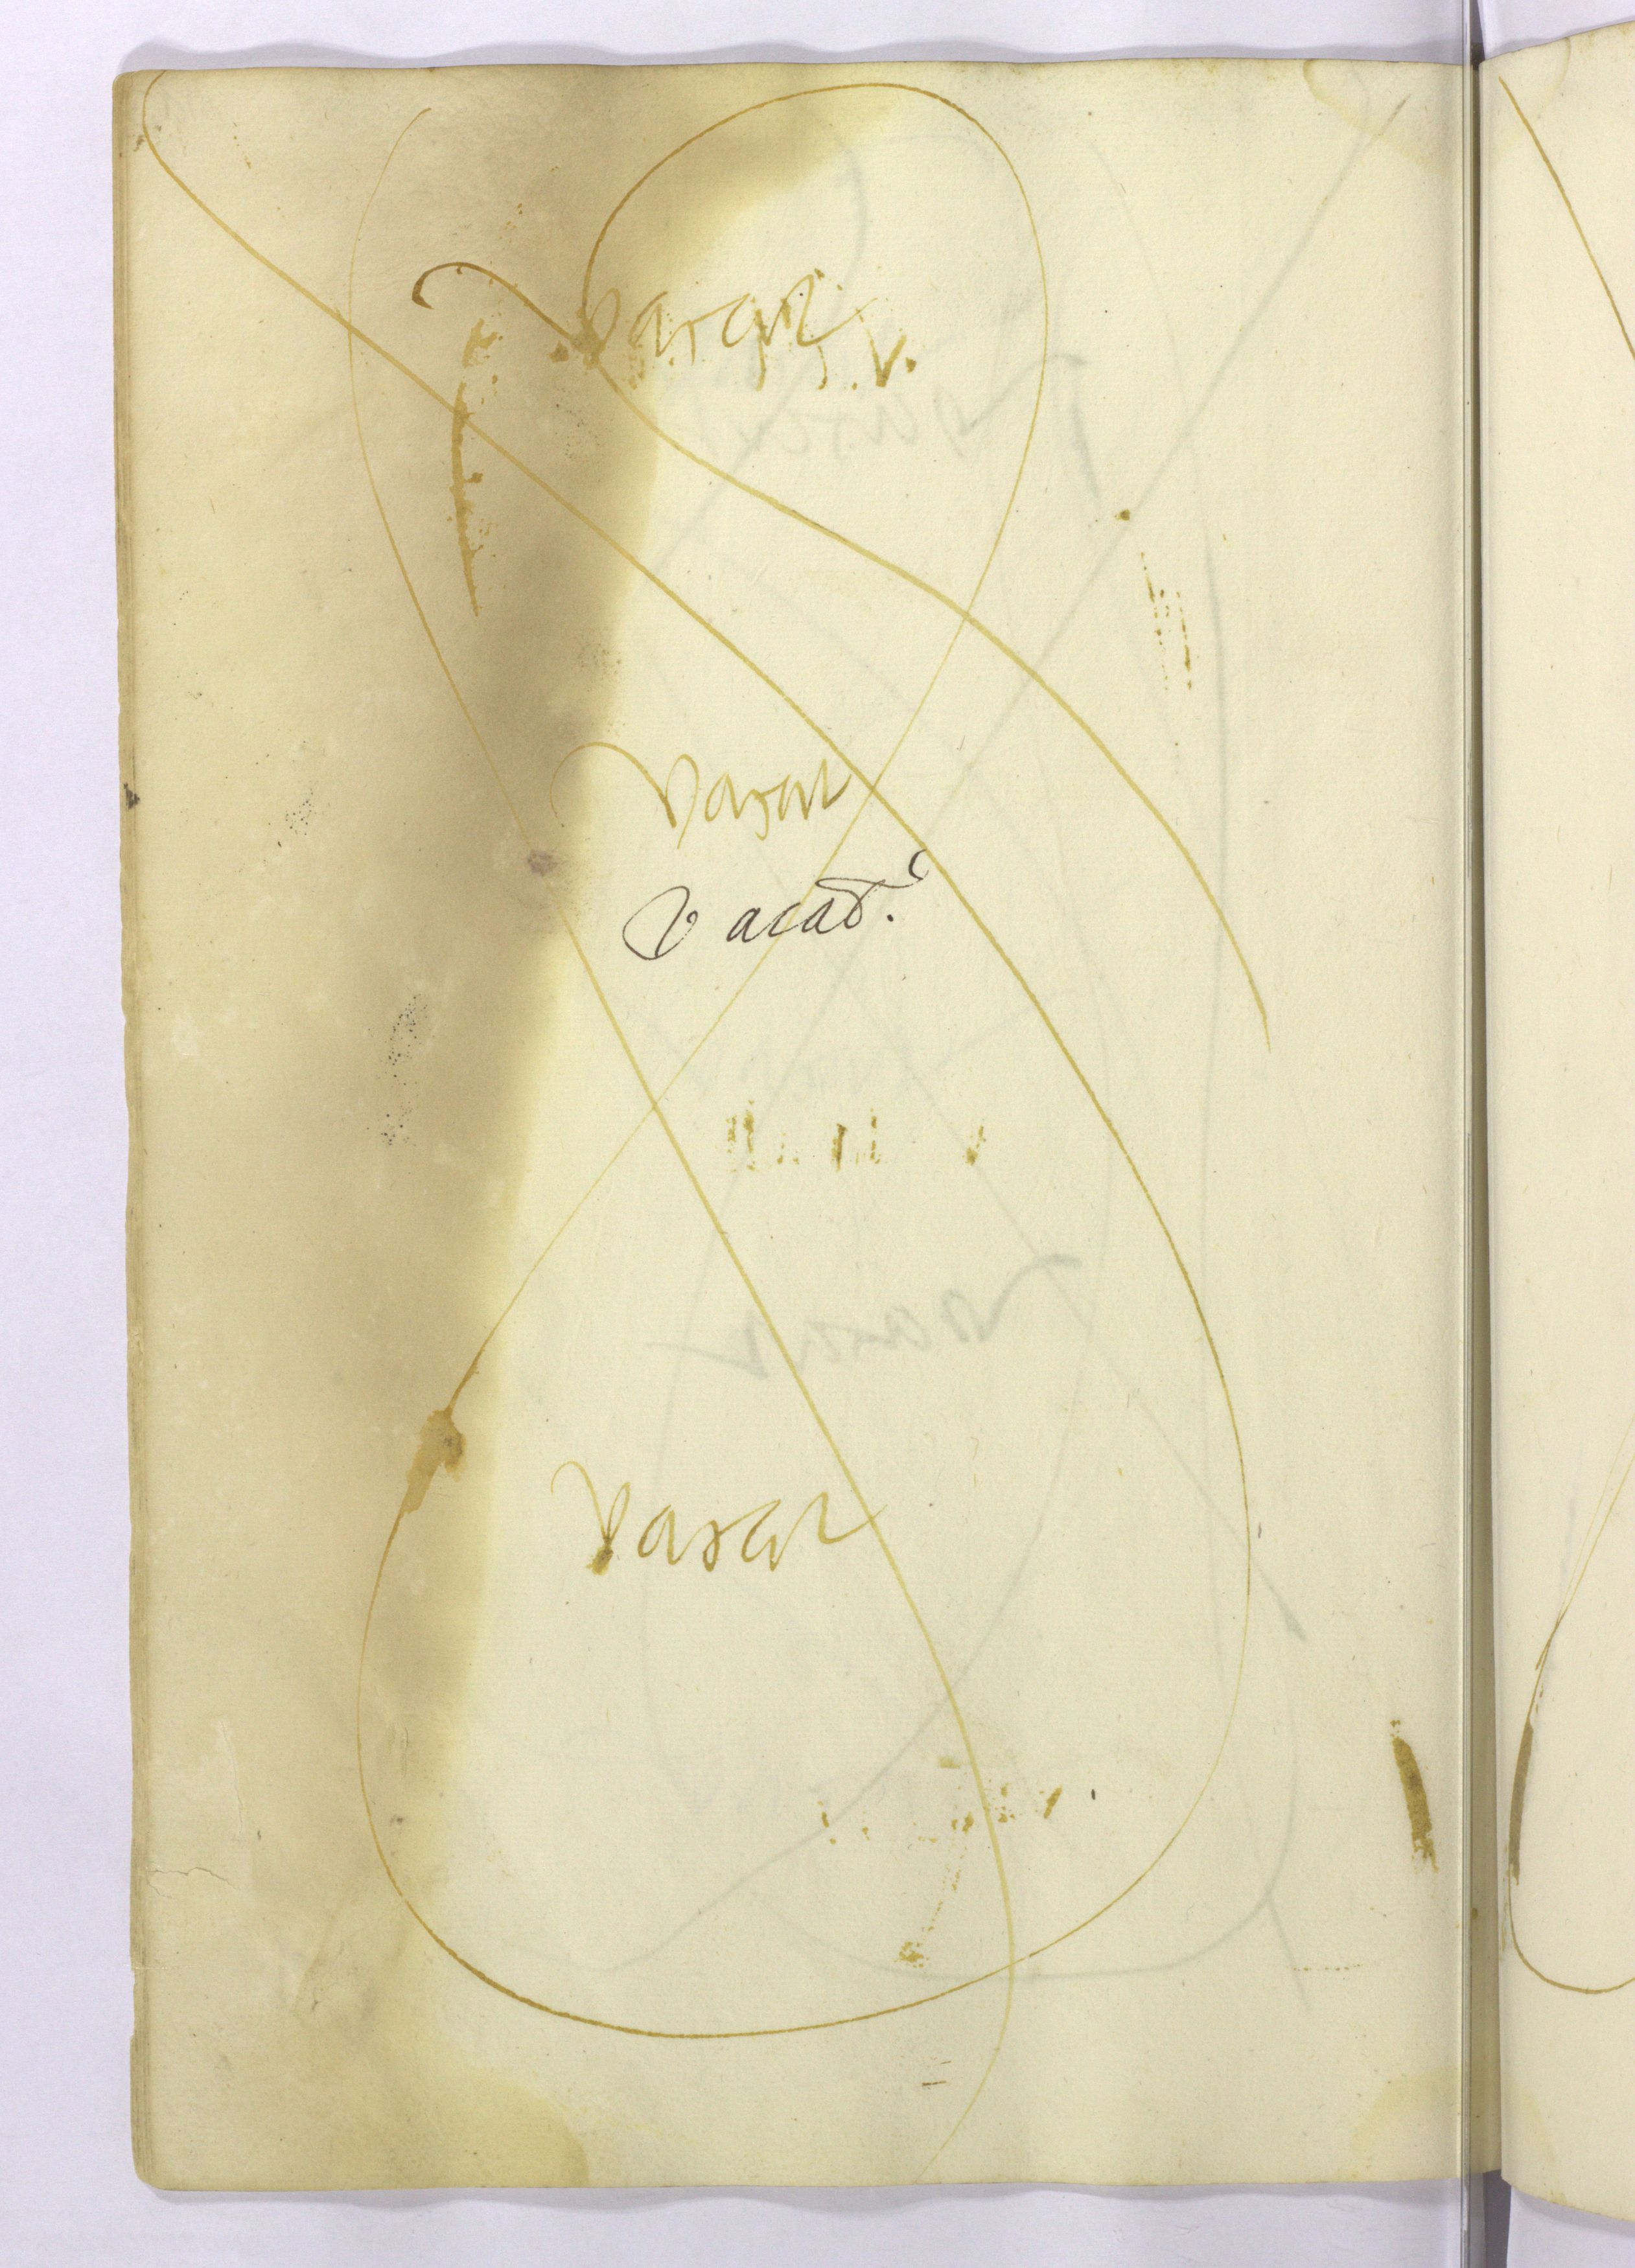 Vacat
Vacat
Vacat.
Vacat